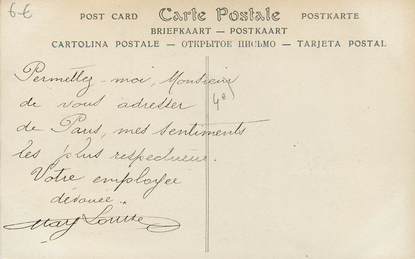 6€
POST CARD Carte Postale POSTKARTE
BRIEFKAART — POSTKAART
CARTOLINA POSTALE — ОТКРЫТОЕ ПИСЬМО — TARJETA POSTAL
Permettez-moi, Monsieur
de vous adresser
de Paris, mes sentiments
les plus respectueux.
Votre employée
dévouée.